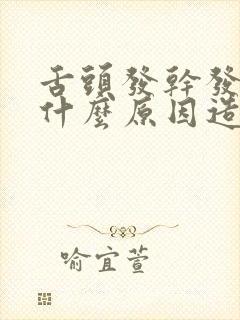 舌頭發幹發
什麼原因造
喻宜萱